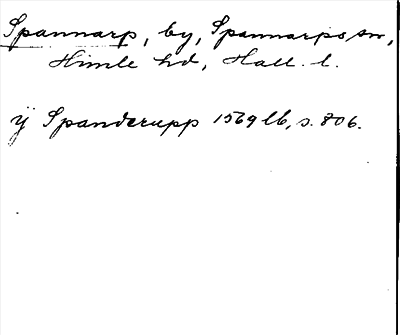 Spannarp, by, Spannarps sn,
Himle hd, Hall. l.
ÿ Spanderupp 1569 lb, s. 806.